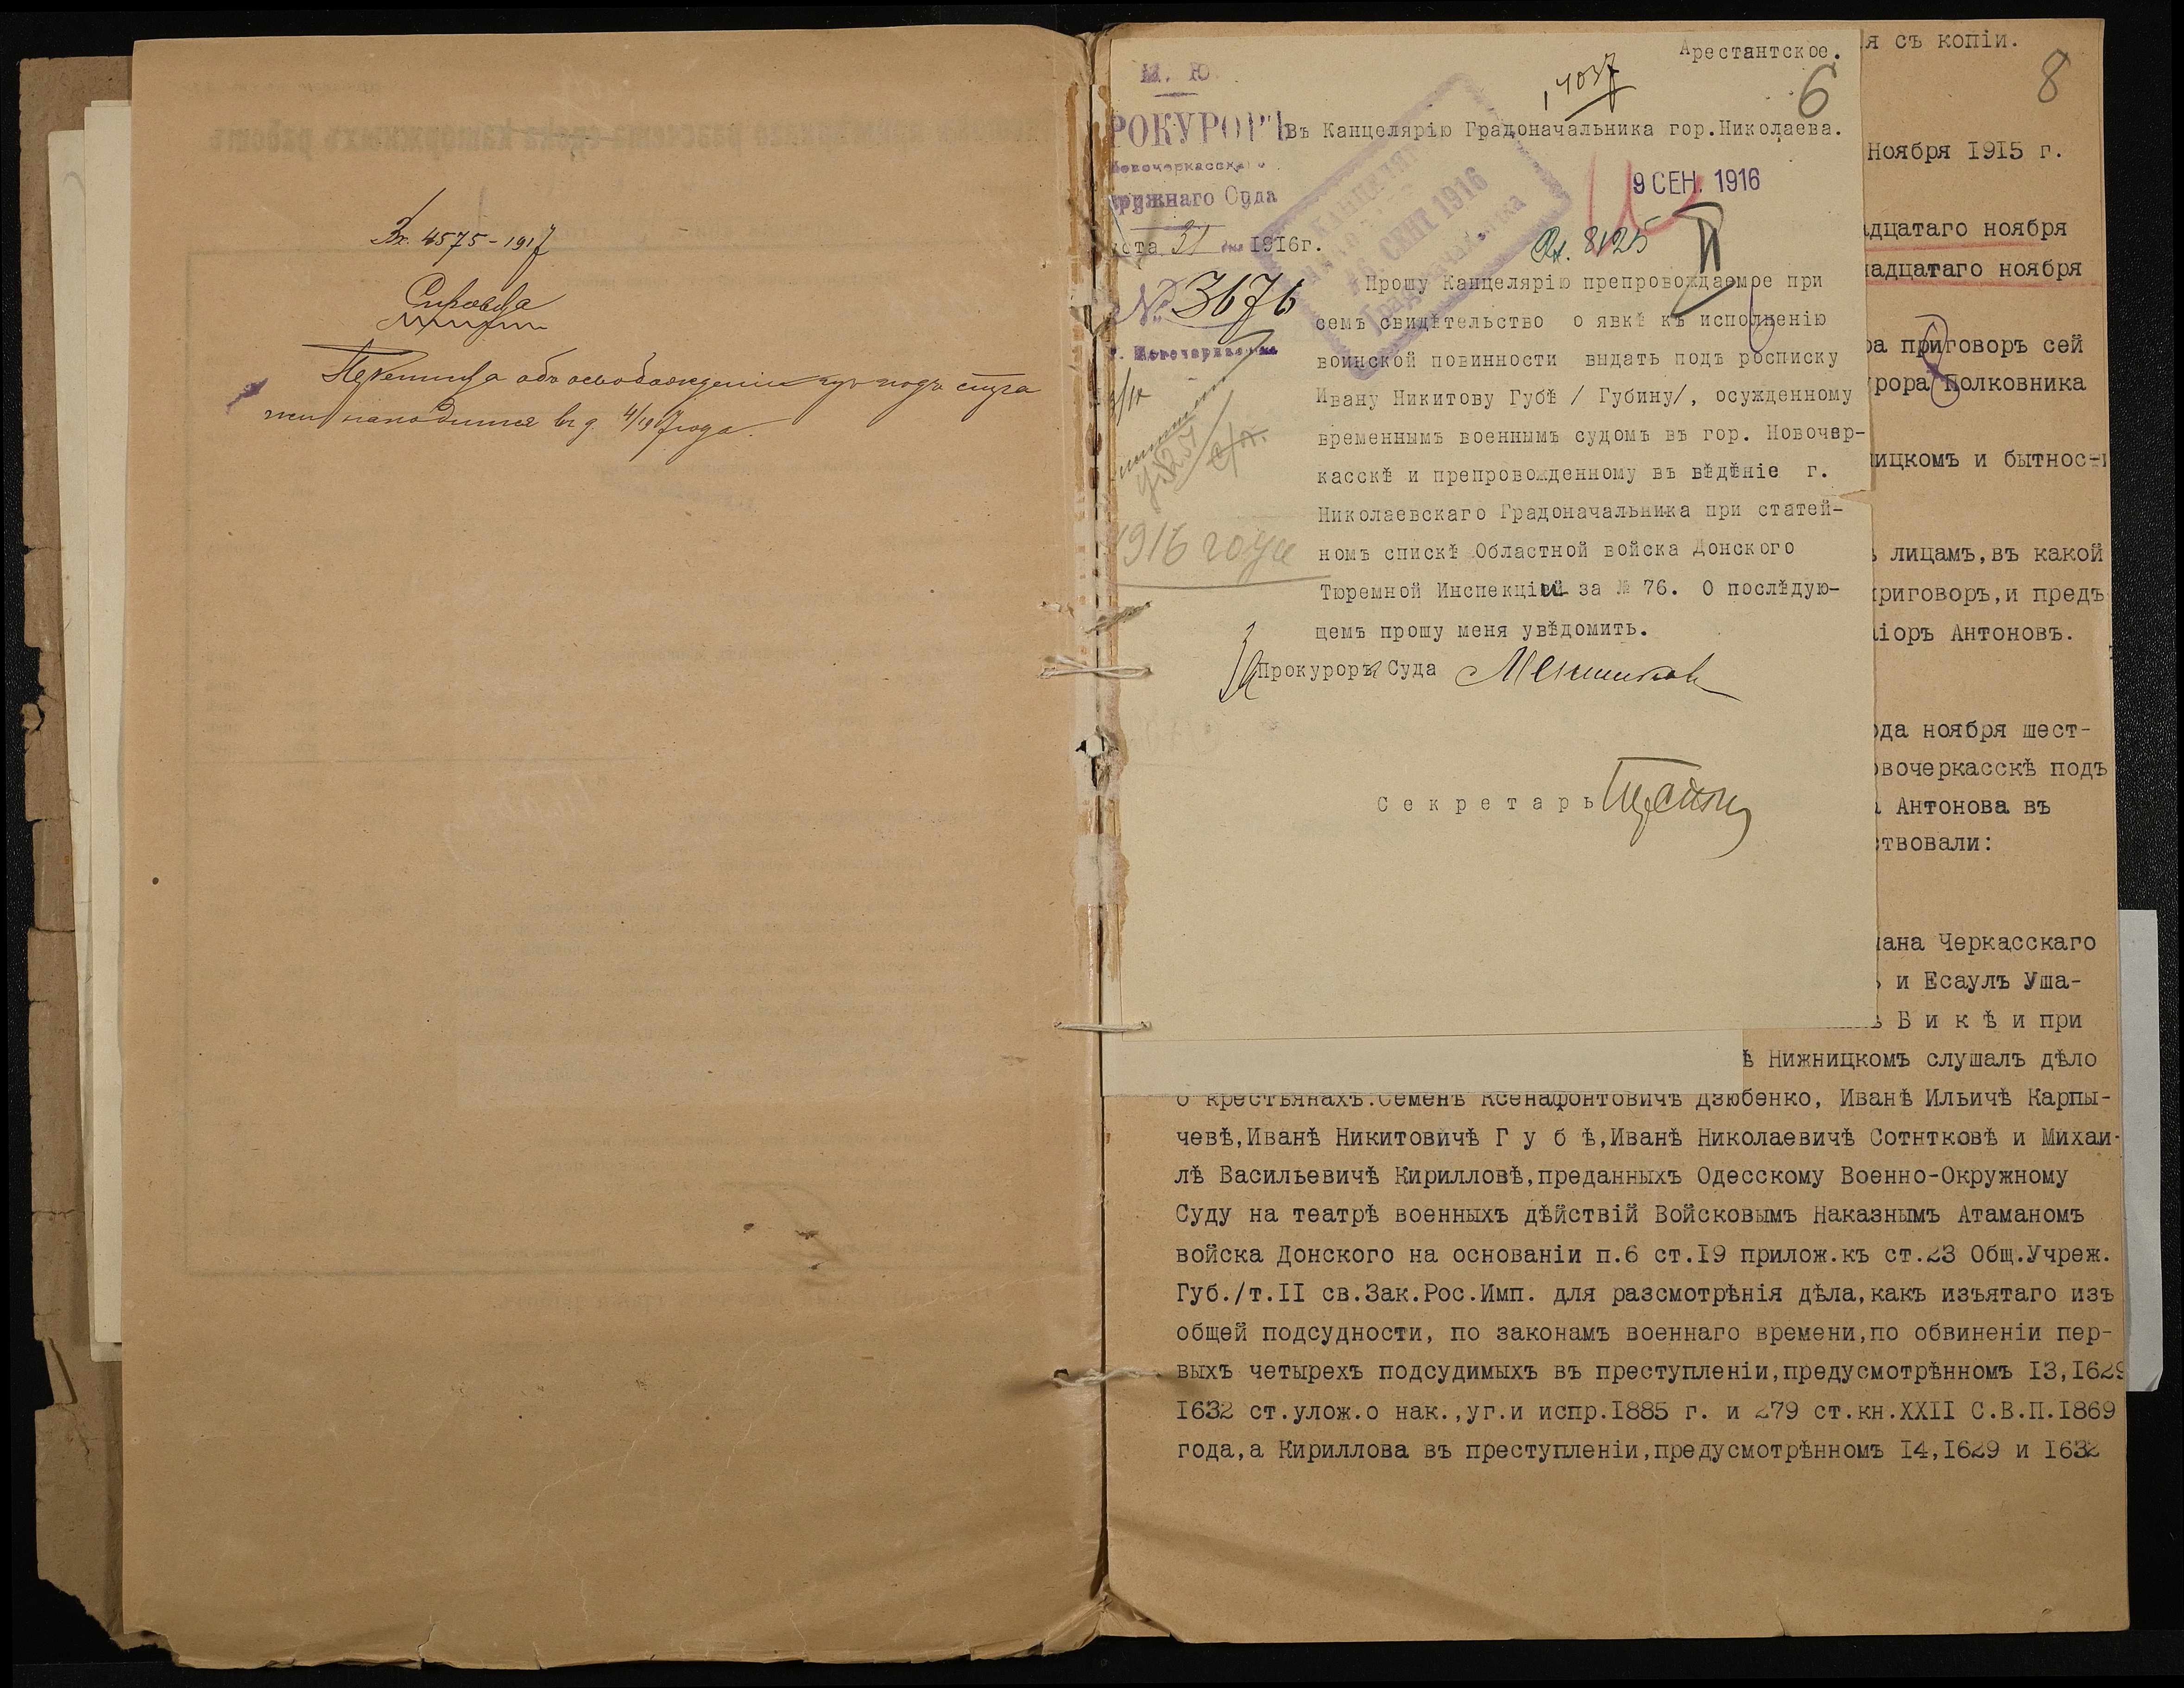 Вх. 4575-1917
Справка
Переписка объ освобожденіи изъ подъ стра
жи находится въ д. 4/1917 года.
Арестантское.
М. Ю.
14037
6
РОКУРОРЪ
Въ Канцелярію Градоначальника гор.Николаева.
Новочеркасскаго
ружнаго Суда
9 СЕН. 1916
уста 31 дня 1916г.
Вх. 8125
№ 3676
г. Новочеркасскъ
Прошу Канцелярію препровождаемое при
семъ свидѣтельство о явкѣ къ исполненію
воинской повинности выдать подъ росписку
Ивану Никитову Губѣ / Губину/, осужденному
временнымъ военнымъ судомъ въ гор. Новочер-
касскѣ и препровожденному въ вѣдѣніе г.
Николаевскаго Градоначальника при статей-
номъ спискѣ Областной войска Донского
Тюремной Инспекціей за № 76. О послѣдую-
щемъ прошу меня увѣдомить.
1916 году
За Прокурора Суда
Секретарь
я съ копіи.
8
Ноября 1915 г.
дцатаго ноября
надцатаго ноября
ра приговоръ сей
урора Полковника
ницкомъ и бытнос-
ъ лицамъ,въ какой
приговоръ,и предъ
аіоръ Антоновъ.
ода ноября шест-
овочеркасскѣ подъ
а Антонова въ
ствовали:
мана Черкасскаго
ъ и Есаулъ Уша-
ъ Б и к ѣ и при
ѣ Нижницкомъ слушалъ дѣло
о крестьянахъ:Семенѣ Ксенафонтовичѣ Дзюбенко, Иванѣ Ильичѣ Карпы-
чевѣ,Иванѣ Никитовичѣ Г у б ѣ,Иванѣ Николаевичѣ Сотнтковѣ и Михаи-
лѣ Васильевичѣ Кирилловѣ,преданныхъ Одесскому Военно-Окружному
Суду на театрѣ военныхъ дѣйствій Войсковымъ Наказнымъ Атаманомъ
войска Донского на основаніи п.6 ст.I9 прилож.къ ст.23 Общ.Учреж.
Губ./т.II св.Зак.Рос.Имп. для разсмотрѣнія дѣла,какъ изъятаго изъ
общей подсудности, по законамъ военнаго времени,по обвиненіи пер-
выхъ четырехъ подсудимыхъ въ преступленіи,предусмотрѣнномъ I3,I629
I632 ст.улож.о нак.,уг.и испр.I885 г. и 279 ст.кн.XXII С.В.П.I869
года,а Кириллова въ преступленіи,предусмотрѣнномъ I4,I629 и I632